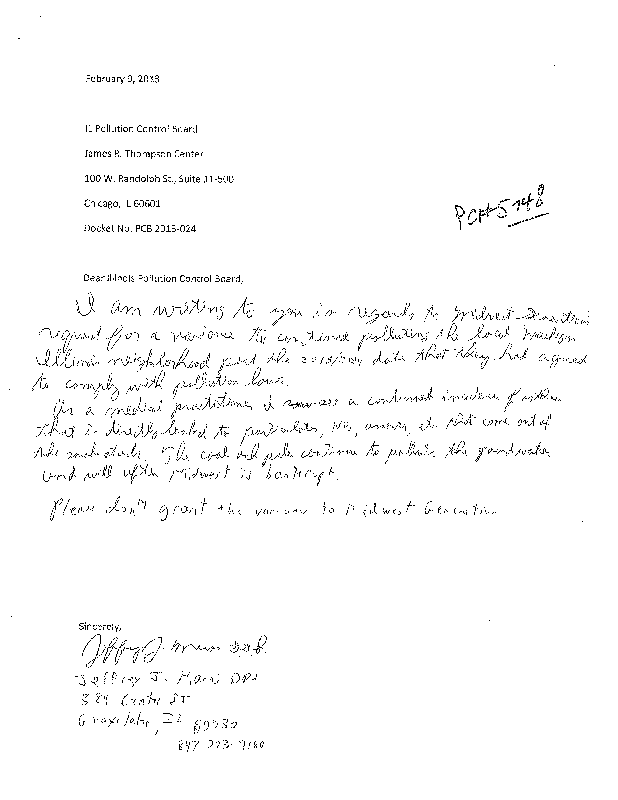 February 9, 2013
IL Pollution Control Board
James R. Thompson Center
100 W. Randolph St., Suite 11-500
Chicago, IL 60601
Docket No. PCB 2013-024
PC#5748
Dear Illinois Pollution Control Board,
I am writing to you in regards to Midwest Generation's
request for a variance to continue polluting the local Waukegan
Illinois neighborhood past the date that they had agreed
to comply with pollution laws.
As a medical practitioner I a continued incidence of
that is directly linked to particulates, etc, that come out of
the smokestacks. The coal ash continue to pollute the groundwater
and will after Midwest is bankrupt.
Please don't grant the variance to Midwest Generation
Sincerely,
Jeffrey J.
Jeffrey J.
384 Center St
Grayslake, IL 60030
847 223